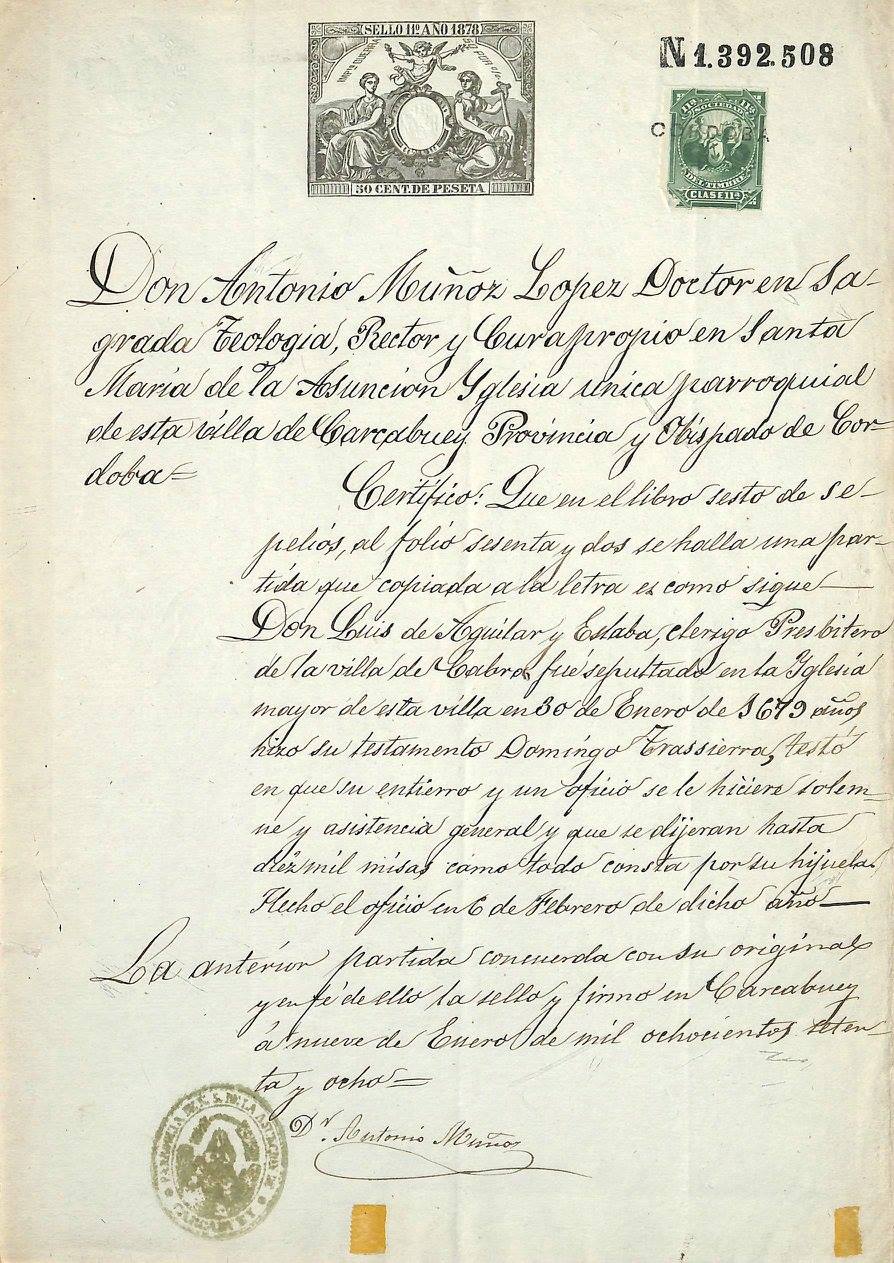 SELLO 11º AÑO 1878
IMPTO GUERRA
50 CENT. DE PESETA
N 1.392.508
11ª 11ª
SOCIEDAD
CORDOBA
DEL TIMBRE
CLASE 11ª
Don Antonio Muñoz Lopez Doctor en Sa-
grada Teologia, Rector y Cura propio en Santa
Maria de la Asuncion Yglesia unica parroquial
de esta villa de Carcabuey Provincia y Obispado de Cor-
doba=
Certifico: Que en el libro sesto de se-
pelios, al folio sesenta y dos se halla una par-
tida que copiada a la letra es como sigue—
Don Luis de Aguilar y Eslaba, clerigo Presbitero
de la villa de Cabra, fué sepultado en la Yglesia
mayor de esta villa en 30 de Enero de 1679 años
hizo su testamento Domingo Trassierra, testó
en que su entierro y un oficio se le hiciere solem-
ne y asistencia general y que se dijeran hasta
diez mil misas como todo consta por su hijuela.
Hecho el oficio en 6 de Febrero de dicho año—
La anterior partida concuerda con su original
y en fé de ello la sello y firmo en Carcabuey
á nueve de Enero de mil ochocientos seten-
ta y ocho=
Dr. Antonio Muñoz
PARROQUIA DE N. S. DE LA ASUNCION DE
CARCABUEY